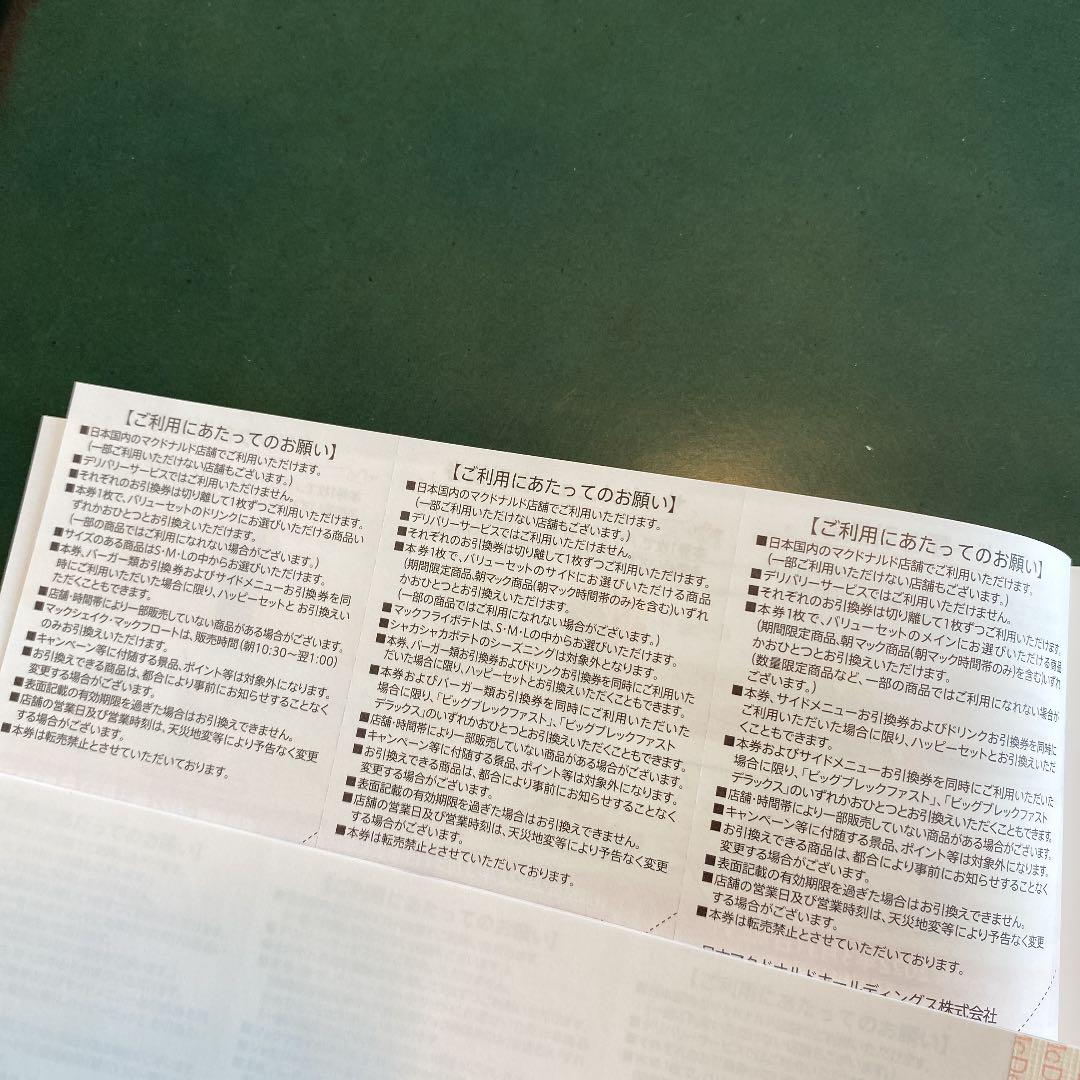 【ご利用にあたってのお願い】
■日本国内のマクドナルド店舗でご利用いただけます。
(一部ご利用いただけない店舗もございます。)
■デリバリーサービスではご利用いただけません。
■それぞれのお引換券は切り離して1枚ずつご利用いただけます。
■本券1枚で、バリューセットのドリンクにお選びいただける商品い
ずれかおひとつとお引換えいただけます。
(一部の商品ではご利用になれない場合がございます。)
■サイズのある商品はS・M・Lの中からお選びいただけます。
■本券、バーガー類お引換券およびサイドメニューお引換券を同
時にご利用いただいた場合に限り、ハッピーセットとお引換えい
ただくこともできます。
■店舗・時間帯により一部販売していない商品がある場合がございます。
■マックシェイク・マックフロートは、販売時間(朝10:30~翌1:00)
のみお引換えいただけます。
■キャンペーン等に付随する景品、ポイント等は対象外になります。
■お引換えできる商品は、都合により事前にお知らせすることなく
変更する場合がございます。
■表面記載の有効期限を過ぎた場合はお引換えできません。
■店舗の営業日及び営業時刻は、天災地変等により予告なく変更
する場合がございます。
■本券は転売禁止とさせていただいております。
【ご利用にあたってのお願い】
■日本国内のマクドナルド店舗でご利用いただけます。
(一部ご利用いただけない店舗もございます。)
■デリバリーサービスではご利用いただけません。
■それぞれのお引換券は切り離して1枚ずつご利用いただけます。
■本券1枚で、バリューセットのサイドにお選びいただける商品
(期間限定商品、朝マック商品(朝マック時間帯のみ)を含む)いずれ
かおひとつとお引換えいただけます。
(一部の商品ではご利用になれない場合がございます。)
■マックフライポテトは、S・M・Lの中からお選びいただけます。
■シャカシャカポテトのシーズニングは対象外となります。
■本券、バーガー類お引換券およびドリンクお引換券を同時にご利用いた
だいた場合に限り、ハッピーセットとお引換えいただくこともできます。
■本券およびバーガー類お引換券を同時にご利用いただいた
場合に限り、「ビッグブレックファスト」、「ビッグブレックファスト
デラックス」のいずれかおひとつとお引換えいただくこともできます。
■店舗・時間帯により一部販売していない商品がある場合がございます。
■キャンペーン等に付随する景品、ポイント等は対象外になります。
■お引換えできる商品は、都合により事前にお知らせすることなく
変更する場合がございます。
■表面記載の有効期限を過ぎた場合はお引換えできません。
■店舗の営業日及び営業時刻は、天災地変等により予告なく変更
する場合がございます。
■本券は転売禁止とさせていただいております。
【ご利用にあたってのお願い】
■日本国内のマクドナルド店舗でご利用いただけます。
(一部ご利用いただけない店舗もございます。)
■デリバリーサービスではご利用いただけません。
■それぞれのお引換券は切り離して1枚ずつご利用いただけます。
■本券1枚で、バリューセットのメインにお選びいただける商品
(期間限定商品、朝マック商品(朝マック時間帯のみ)を含む)いずれ
かおひとつとお引換えいただけます。
(数量限定商品など、一部の商品ではご利用になれない場合が
ございます。)
■本券、サイドメニューお引換券およびドリンクお引換券を同時に
ご利用いただいた場合に限り、ハッピーセットとお引換えいただ
くこともできます。
■本券およびサイドメニューお引換券を同時にご利用いただいた
場合に限り、「ビッグブレックファスト」、「ビッグブレックファスト
デラックス」のいずれかおひとつとお引換えいただくこともできます。
■店舗・時間帯により一部販売していない商品がある場合がございます。
■キャンペーン等に付随する景品、ポイント等は対象外になります。
■お引換えできる商品は、都合により事前にお知らせすることなく
変更する場合がございます。
■表面記載の有効期限を過ぎた場合はお引換えできません。
■店舗の営業日及び営業時刻は、天災地変等により予告なく変更
する場合がございます。
■本券は転売禁止とさせていただいております。
日本マクドナルドホールディングス株式会社